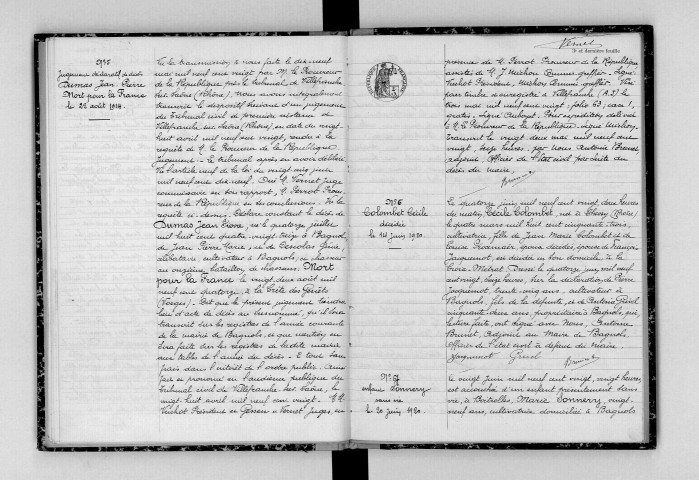 N° 5
Jugement déclaratif de décès
Dumas Jean Pierre
Mort pour la France
le 22 août 1914.
Vu la transmission à nous faite le dix neuf
mai mil neuf cent vingt par M. le Procureur
de la République près le tribunal de Villefranche
sur Saône (Rhône), Nous avons intégralement
transcrit le dispositif suivant d'un jugement
du Tribunal civil de première instance de
Villefranche sur Saône (Rhône), en date du vingt-
huit avril mil neuf cent vingt, rendu à la
requête de M. le Procureur de la République
Jugement. Le tribunal après en avoir délibéré
Vu l'article neuf de la loi du vingt cinq juin
mil neuf cent dix neuf. Ouï M. Vernet juge
commissaire en son rapport, M. Perrot Procu
reur de la République en ses conclusions. Vu la
requête ci-dessus. Déclare constant le décès de
Dumas Jean Pierre, né le quatorze juillet
mil huit cent quatre vingt treize à Bagnols
de Jean Pierre Marie, et de
célibataire, cultivateur à Bagnols, en chasseur
au onzième bataillon de chasseurs, Mort
pour la France le vingt deux août mil
neuf cent quatorze, à la Crête des Genêts
(Vosges). Dit que le présent jugement tiendra
lieu d'acte de décès au susnommé, qu'il sera
transcrit sur les registres de l'année courante
de la mairie de Bagnols, et que mention en
sera faite sur les registres de ladite mairie
aux tables de l'année du décès. Et tous sans
frais dans l'intérêt de l'ordre public. Ainsi
fait et prononcé en l'audience publique du
Tribunal civil de Villefranche sur Saône, le
vingt-huit avril mil neuf cent vingt. M. M.
Vuchot Président, et Vernet juges, en
Vernet
3e et dernière feuille
présence de M. Perrot Procureur de la République
assistés de M. J. Michon Commis greffier. Signé
Vuchot Président, Michon Commis greffier. Visé
pour timbre et enregistré à Villefranche (A.J) le
trois mai mil neuf cent vingt, folio 63, case 1,
gratis. Signé Pour expédition délivrée
à M. le Procureur de la République. signé Michon.
Transcrit le vingt deux mai mil neuf cent
vingt, seize heures, par nous Antoine Brunet
adjoint, officier de l'état civil par suite du
décès du maire,
Brunet
N° 6
Colombet Cécile
décédée
le 14 juin 1920.
Le quatorze juin, mil neuf cent vingt, deux heures
du matin, Cécile Colombet, née à Chessy (Rhône)
le quatre mars mil huit cent cinquante trois,
cultivatrice, fille de Jean Marie Colombet et de
Louise époux décédés, épouse de François
Jacquemot, est décédée en son domicile à la
Croix. Dressé le quatorze juin, mil neuf
cent vingt, onze heures, sur la déclaration de Pierre
Jacquemot, trente cinq ans, cultivateur à
Bagnols, fils de la défunte, et de
cinquante deux ans, propriétaire à Bagnols, qui,
lecture faite, ont signé avec Nous, Antoine
Brunet, adjoint au Maire de Bagnols,
officier de l'état civil à défaut du maire.
Jacquemot
Brunet
N° 7
enfant Sonnery
sans vie
le 20 juin 1920.
Le vingt juin mil neuf cent vingt, vingt heures,
est accouchée d'un enfant présentement sans
vie, à Marie Sonnery, vingt-
neuf ans, cultivatrice domiciliée à Bagnols